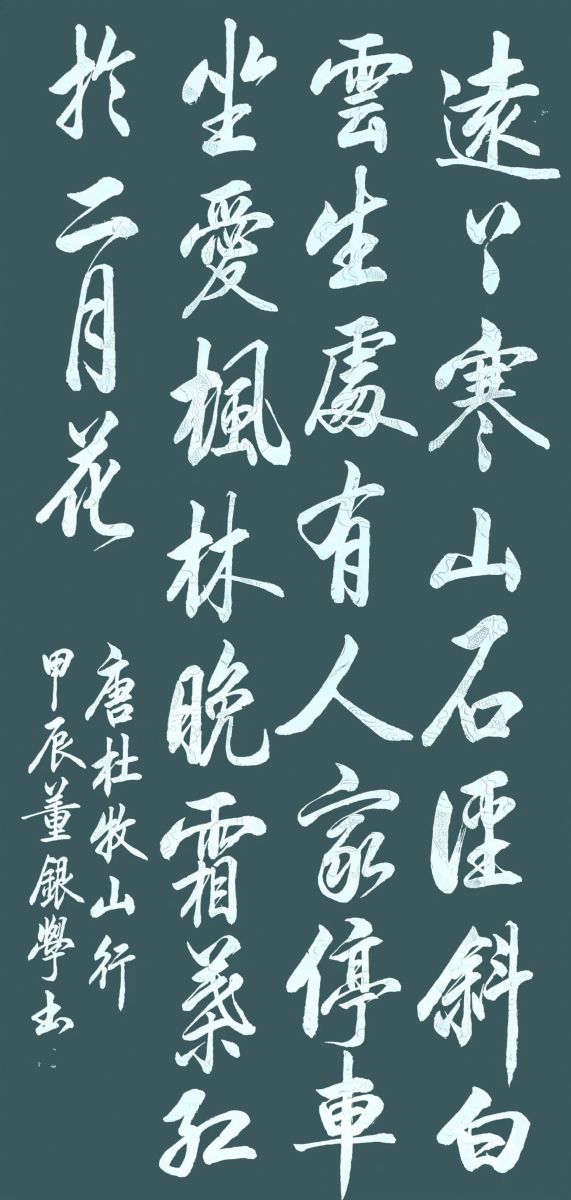 遠上寒山石徑斜白
雲生處有人家停車
坐愛楓林晚霜葉紅
於二月花
唐杜牧山行
甲辰董銀學书